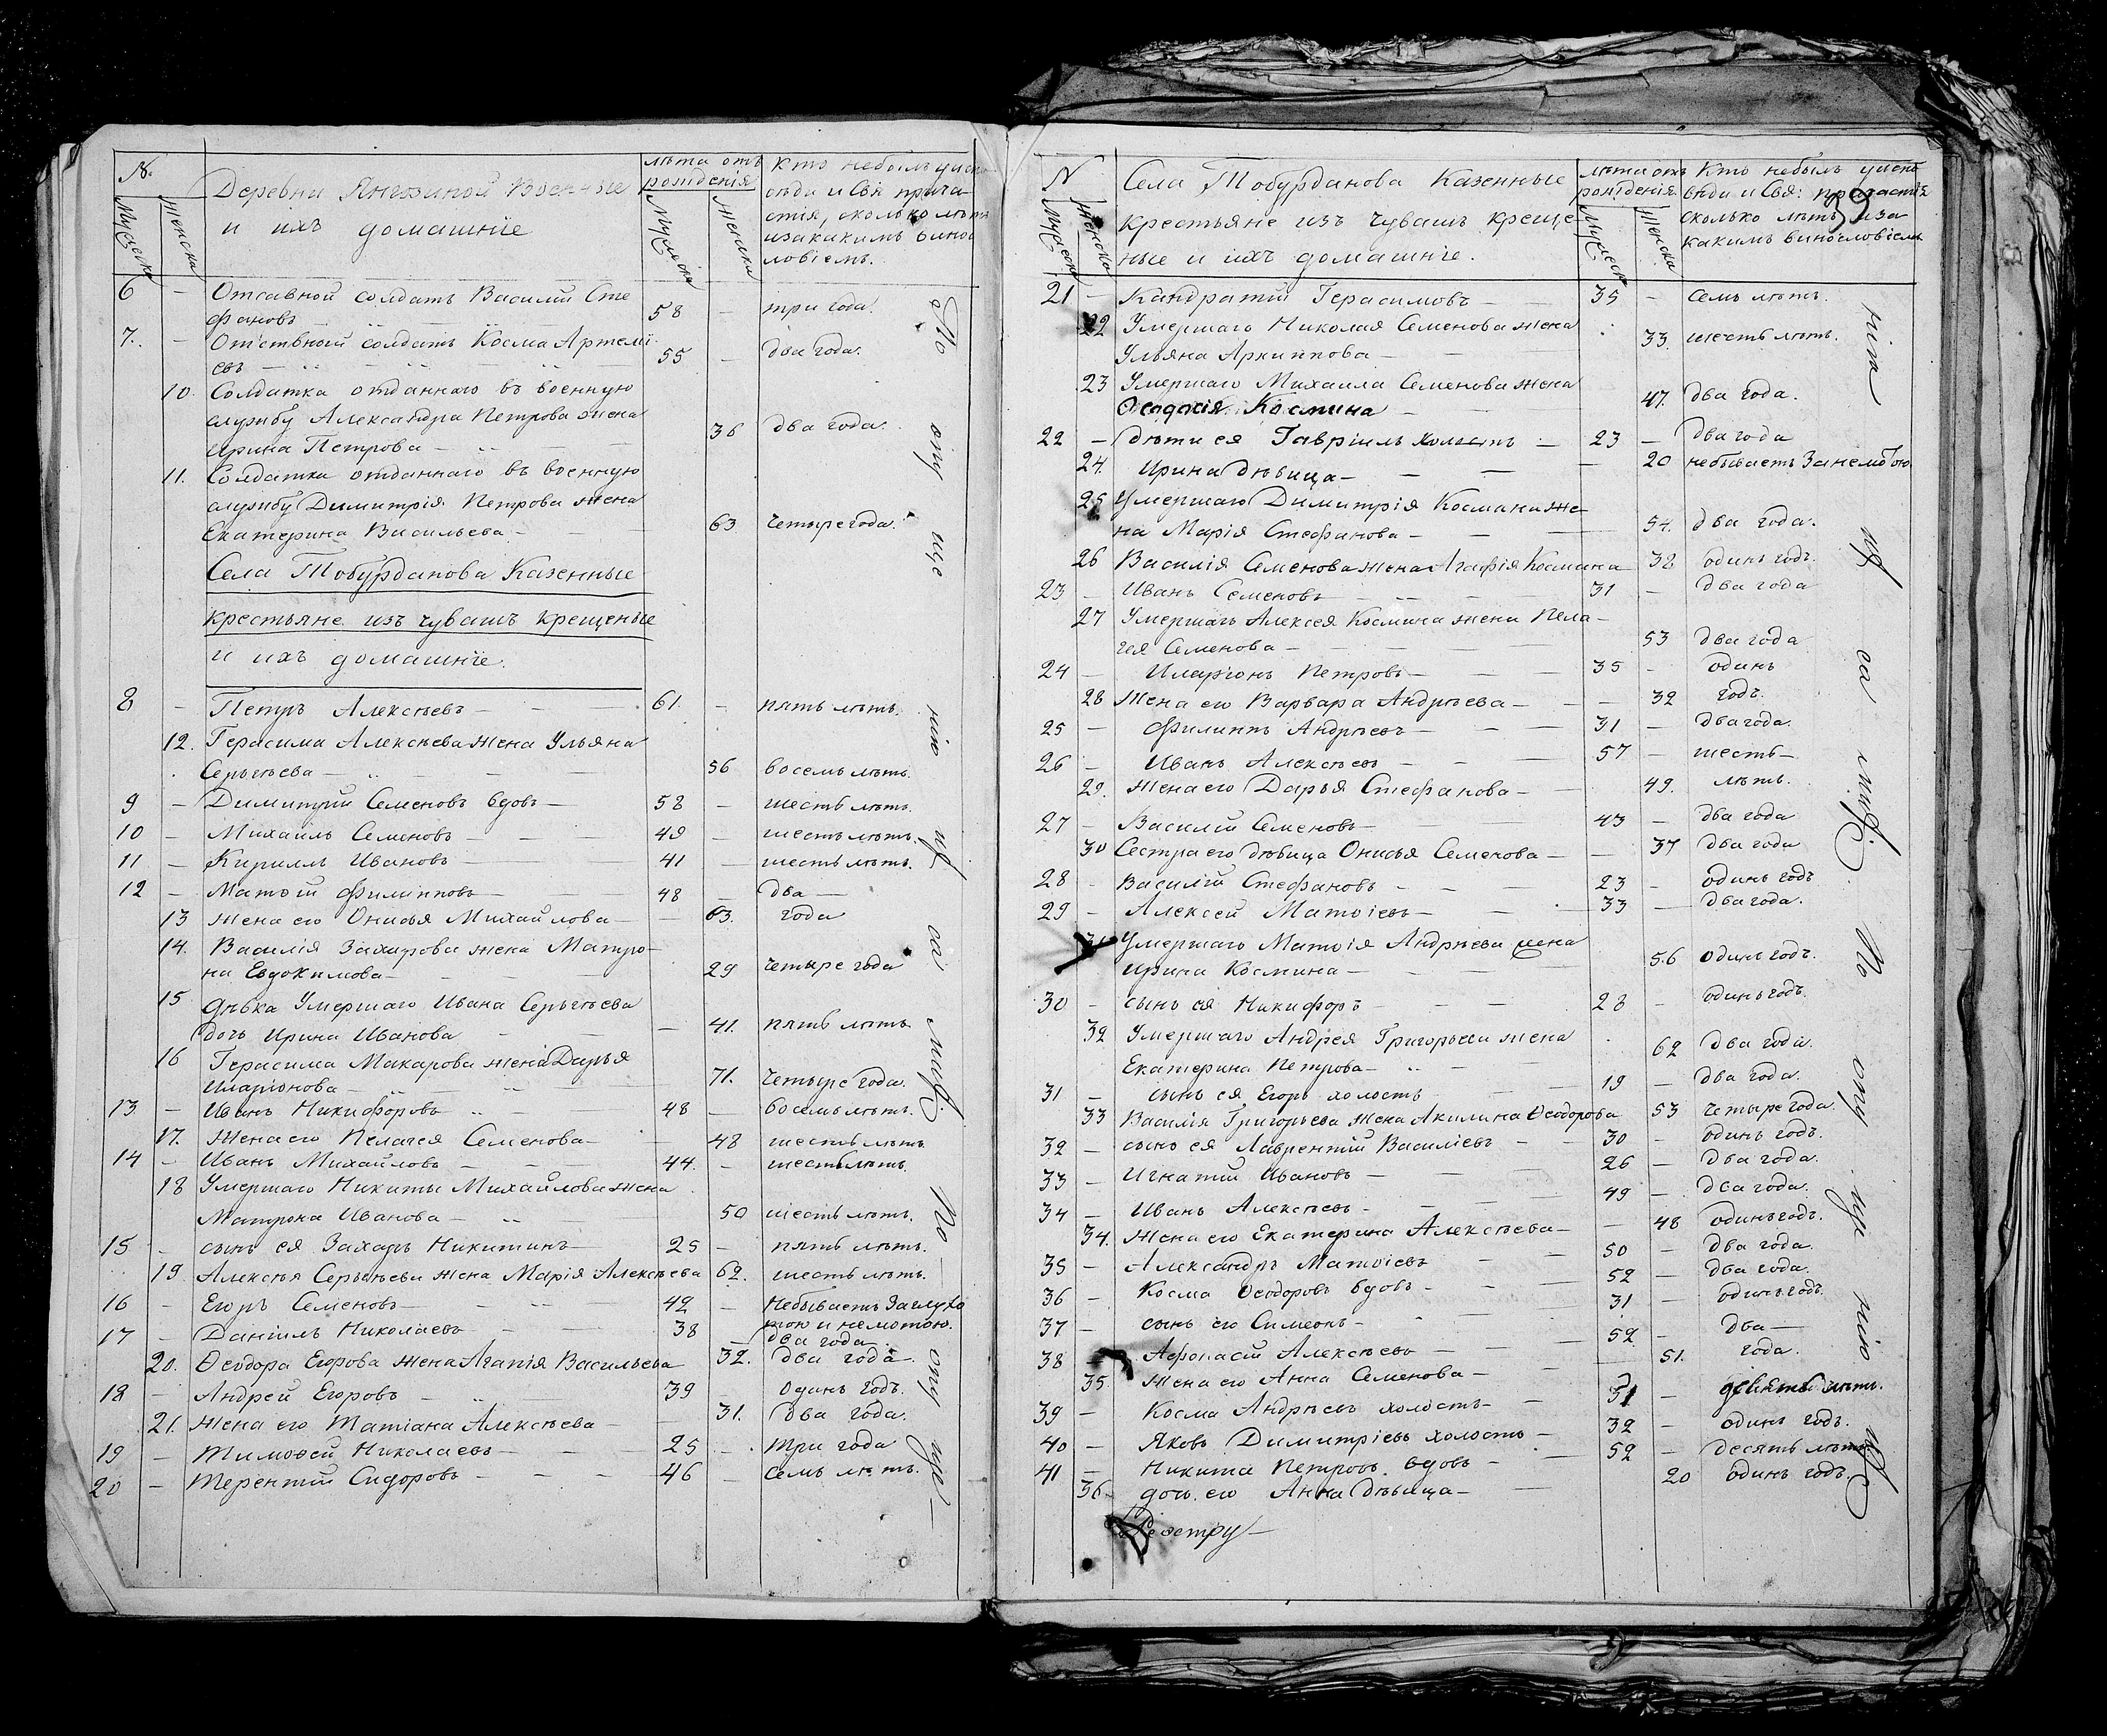 №
Деревни Янгозиной Военные
и ихъ домашніе
лѣта отъ
рожденія
Кто небылъ уиспо
вѣди и Свя прича
стія, сколько лѣтъ
изакакимъ винос
ловіемъ.
Мужеска
Женска
Мужеска
Женска
6 — Отсавной солдатъ Василій Сте
фановъ — 58 — три года.
7. — Отствной солдатъ Косма Артемі
евъ — 55 — два года.
10. Солдатка отданнаго въ военную
службу Александра Петрова жена
Ирина Петрова — 36 два года.
11. Солдатка отданнаго въ военную
службу Димитрія Петрова жена
Екатерина Васильева — 63 четыре года.
Села Тобурданова Казенные
крестьяне изъ чувашъ крещеные
и ихъ домашніе.
8 — Петръ Алексѣевъ — 61. — пять лѣтъ.
12. Герасима Алексѣева жена Ульяна
Сергѣева — 56 восемь лѣтъ.
9 — Димитрій Семеновъ вдовъ — 58 — шесть лѣтъ.
10 — Михаилъ Семеновъ — 49 — шесть лѣтъ.
11 — Кириллъ Ивановъ — 41 — шесть лѣтъ.
12 — Матѳій Филипповъ — 48 — два —
13 жена его Онисья Михайлова — 63. года
14. Василія Захарова жена Матро-
на Евдокимова — 29 четыре года
15 дѣвка Умершаго Ивана Сергѣева
дочь Ирина Иванова — 41. пять лѣтъ
16 Герасима Макарова жена Дарья
Иларіонова — 71. четыре года.
13 — Иванъ Никифоровъ 48 — восемь лѣтъ.
17. Жена его Пелагея Семенова — 48 шесть лѣтъ
14 — Иванъ Михайловъ — 44. — шесть лѣтъ.
18 Умершаго Никиты Михайлова жена
Матрона Иванова — 50 шесть лѣтъ.
15 — сынъ ея Захаръ Никитинъ — 25 — пять лѣтъ.
19 Алексѣя Сергѣева жена Марія Алексѣева 62. шесть лѣтъ.
16 — Егоръ Семеновъ — 42 — Небываетъ Заглухо
тою и немотою.
17 — Даніилъ Николаевъ — 38 — два года
20. Ѳеодора Егорова жена Агапія Васильева 32. два года.
18 — Андрей Егоровъ — 39 — Одинъ годъ.
21. жена его Татіана Алексѣева — 31. два года.
19 — Тимоѳей Николаевъ — 25 — три года
20 — Терентій Сидоровъ — 46 — семь лѣтъ.
По опу ще нію
N
Села Тобурданова Казенные
крестьяне изъ чувашъ креще
ные и ихъ домашніе.
лѣта отъ
рожденія
Кто небылъ уиспо
вѣди и Свя: причастія
сколько лѣтъ иза
какимъ винословіемъ
Мужеска
Женска
Мужеска
Женска
21 — Кандратій Герасимовъ — 35 — семь лѣтъ.
22 Умершаго Николая Семенова жена
Ульяна Архиппова — 33. шесть лѣтъ.
23 Умершаго Михаила Семенова жена
Ѳеодосія Космина — 47. два года.
22 — дѣти ея Гавріилъ холостъ — 23 — два года
24. Ирина дѣвица — 20 небываетъ Занемотою
25 Умершаго Димитрія Космина же
на Марія Стефанова — 54. два года.
26 Василія Семенова жена Агафія Космина 38 одинъ годъ.
23 — Иванъ Семеновъ — 31 — два года
27 Умершаго Алексея Космина жена Пела-
гея Семенова — 53 два года
24 — Иларіонъ Петровъ — 35 — одинъ
28 Жена его Варвара Андрѣева — 32 годъ.
25 — Филиппъ Андрѣевъ — 31 — два года.
26 — Иванъ Алексѣевъ — 57 — шесть —
29. Жена его Дарья Стефанова — 49. лѣтъ.
27 — Василій Семеновъ — 43 — два года
30 Сестра его дѣвица Онисья Семенова — 37 два года
28 — Василій Стефановъ — 23 — одинъ годъ
29 — Алексей Матѳіевъ — 33 — два года.
31 Умершаго Матѳія Андрѣева жена
Ирина Космина — 56 одинъ годъ.
30 — сынъ ея Никифоръ — 28 — одинъ годъ.
32 Умершаго Андрея Григорьева жена
Екатерина Петрова — 62 два года.
31 — сынъ ея Егоръ холостъ — 19 — два года.
33 Василія Григорьева жена Акилина Ѳеодорова 53 четыре года.
32 — сынъ ея Лаврентій Василіевъ — 30 — одинъ годъ.
33 — Игнатій Ивановъ — 26 — два года.
34 — Иванъ Алексѣевъ — 49 — два года.
34. Жена его Екатерина Алексѣева — 48 одинъ годъ.
35 — Александръ Матѳіевъ — 50 — два года.
36 — Косма Ѳеодоровъ вдовъ — 52 — два года.
37 — сынъ его Симеонъ — 31 — одинъ годъ.
38 — Афонасій Алексѣевъ — 52. — два —
35. Жена его Анна Семенова — 51. года.
39 — Косма Андрѣевъ холостъ — 31 — девять лѣтъ.
40 — Яковъ Димитріевъ холостъ — 32 — одинъ годъ.
41 — Никита Петровъ вдовъ — 52 — десять лѣтъ
36 дочь его Анна дѣвица — 20 одинъ годъ.
Реэстру —
По опу ще нію